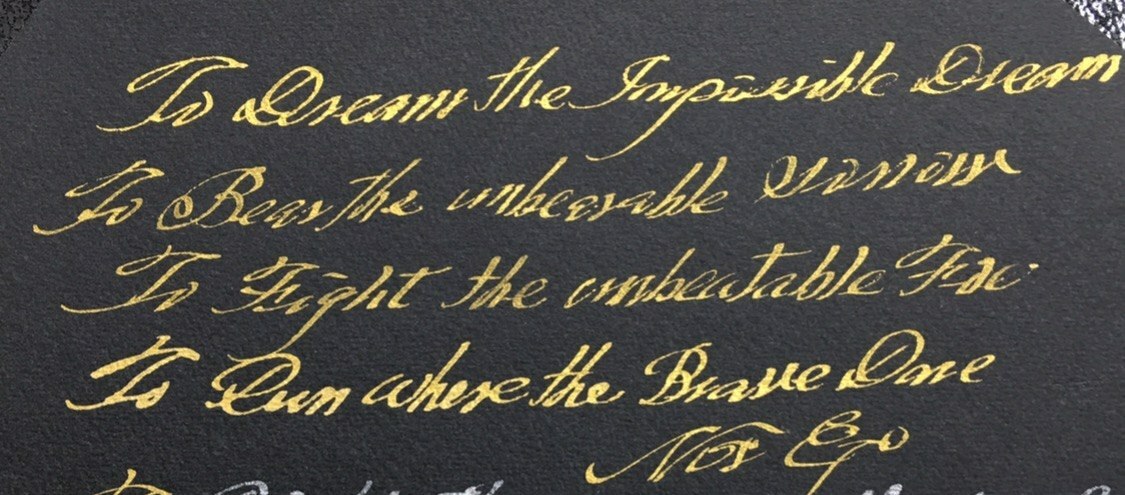 To Dream the Impossible Dream
To Bear the unbearable sorrow
To Fight the unbeatable Foe
To Run where the Brave Dare
Not Go
To